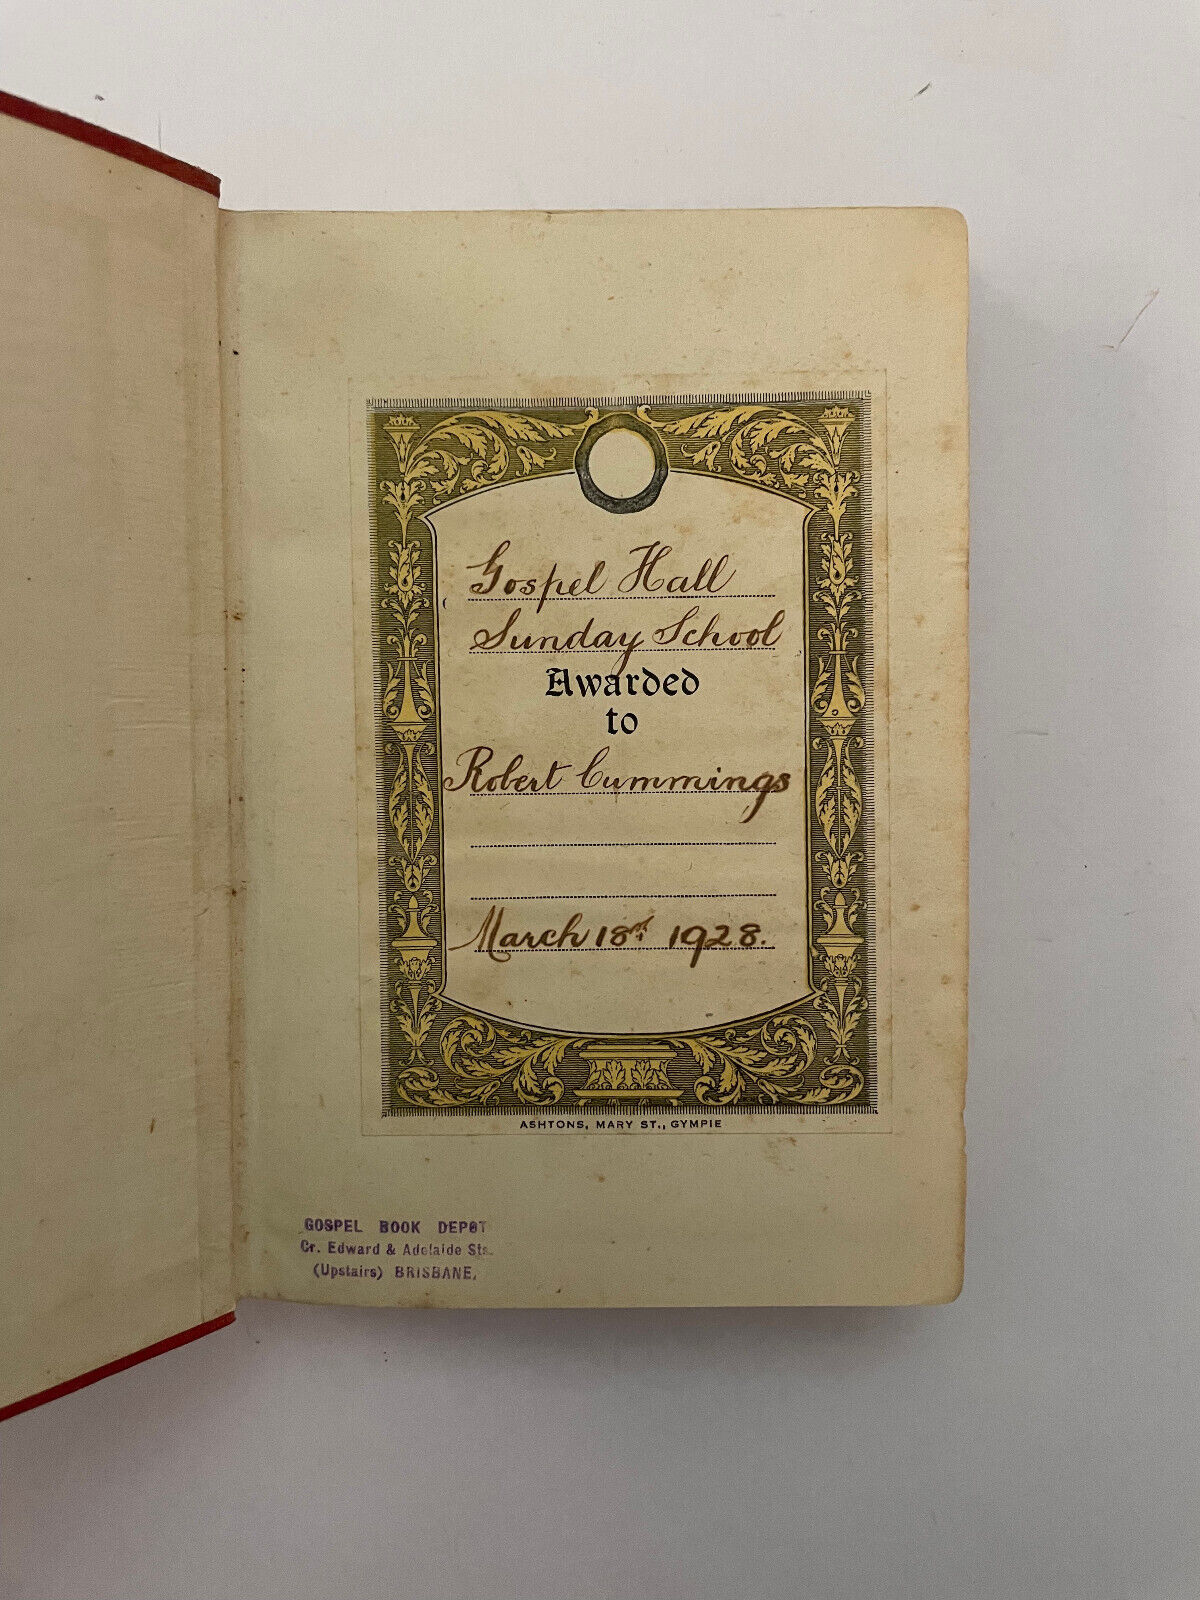 Gospel Hall
Sunday School
Awarded
to
Robert Cummings
March 18th 1928.
ASHTONS, MARY ST., GYMPIE
GOSPEL BOOK DEPOT
Cr. Edward & Adelaide Sts.
(Upstairs) BRISBANE,